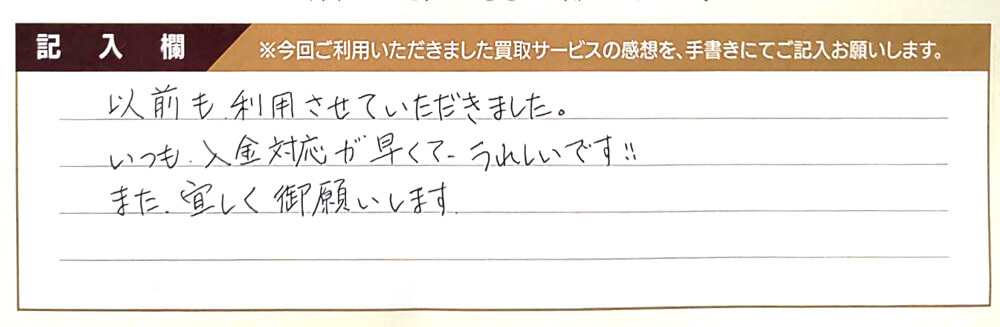 記入欄 ※今回ご利用いただきました買取サービスの感想を、手書きにてご記入お願いします。
以前も、利用させていただきました。
いつも、入金対応が早くて、うれしいです!!
また、宜しく御願いします。